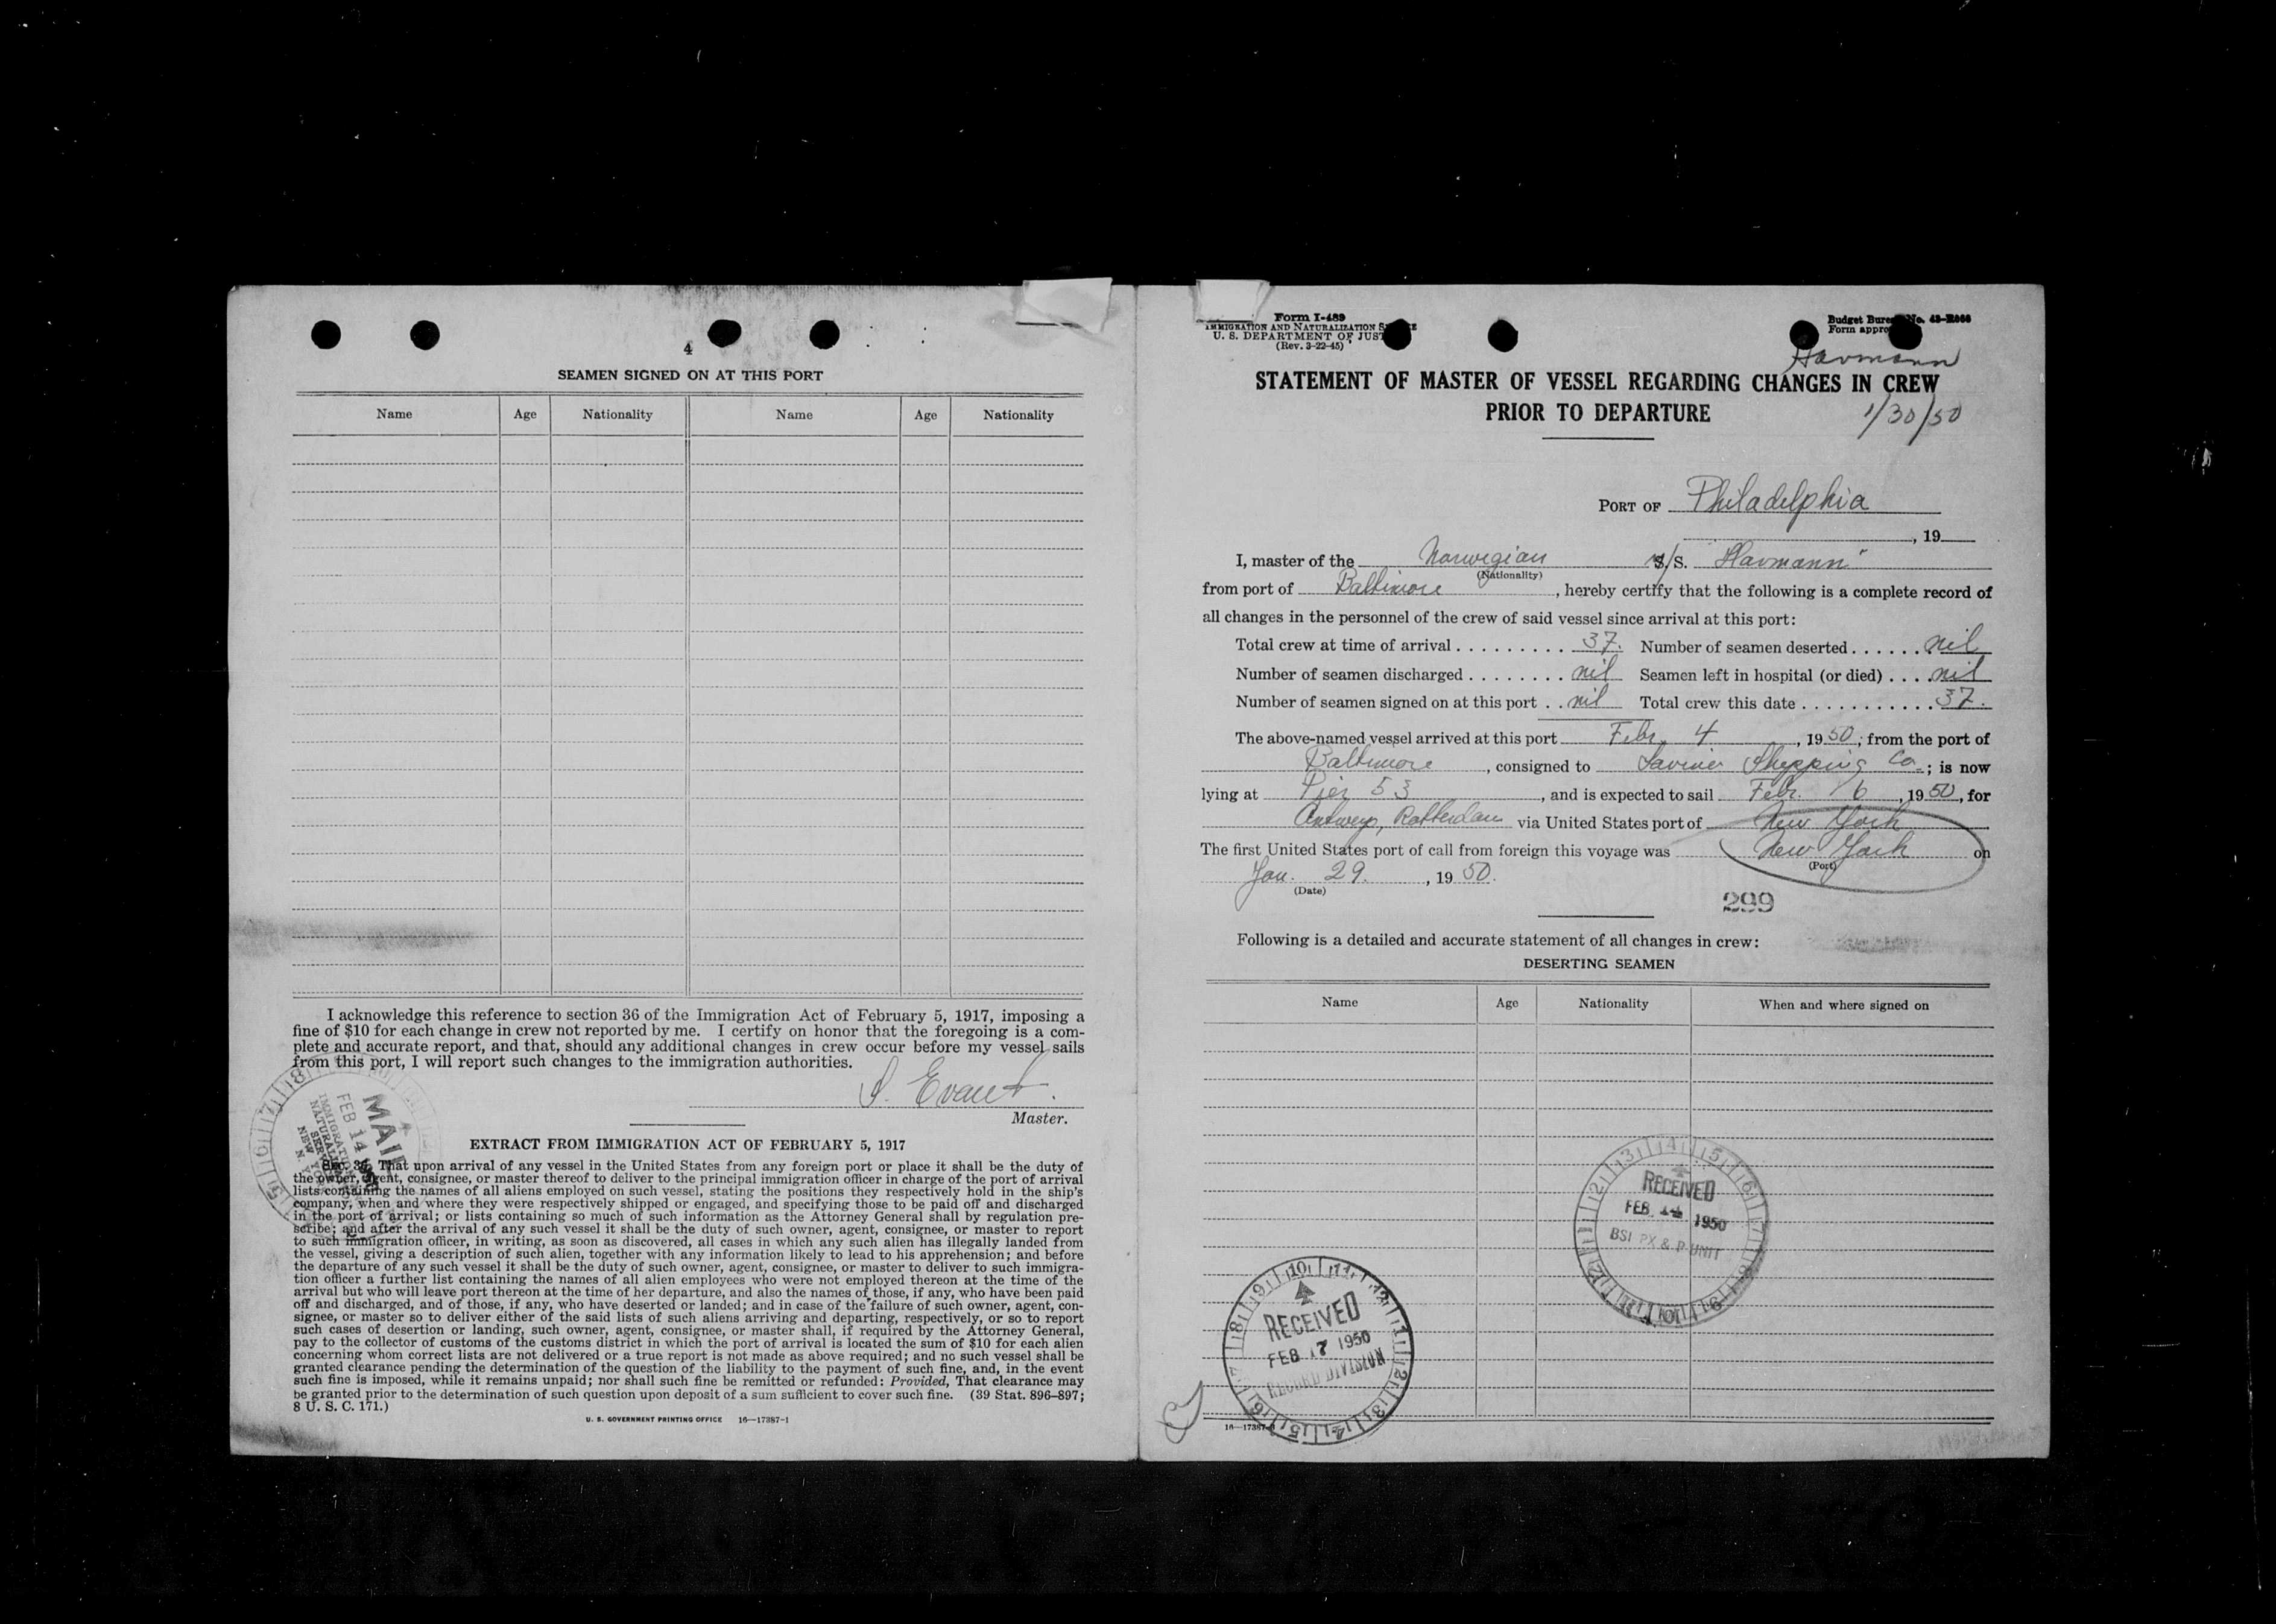 4
SEAMEN SIGNED ON AT THIS PORT
Name Age Nationality Name Age Nationality
I acknowledge this reference to section 36 of the Immigration Act of February 5, 1917, imposing a
fine of $10 for each change in crew not reported by me. I certify on honor that the foregoing is a com-
plete and accurate report, and that, should any additional changes in crew occur before my vessel sails
from this port, I will report such changes to the immigration authorities.
Master.
MAIL
FEB 14
IMMIGRATION
NATURALIZATION
SERVICE
NEW YORK
N. Y.
EXTRACT FROM IMMIGRATION ACT OF FEBRUARY 5, 1917
Sec. 36. That upon arrival of any vessel in the United States from any foreign port or place it shall be the duty of
the owner, agent, consignee, or master thereof to deliver to the principal immigration officer in charge of the port of arrival
lists containing the names of all aliens employed on such vessel, stating the positions they respectively hold in the ship's
company, when and where they were respectively shipped or engaged, and specifying those to be paid off and discharged
in the port of arrival; or lists containing so much of such information as the Attorney General shall by regulation pre-
scribe; and after the arrival of any such vessel it shall be the duty of such owner, agent, consignee, or master to report
to such immigration officer, in writing, as soon as discovered, all cases in which any such alien has illegally landed from
the vessel, giving a description of such alien, together with any information likely to lead to his apprehension; and before
the departure of any such vessel it shall be the duty of such owner, agent, consignee, or master to deliver to such immigra-
tion officer a further list containing the names of all alien employees who were not employed thereon at the time of the
arrival but who will leave port thereon at the time of her departure, and also the names of those, if any, who have been paid
off and discharged, and of those, if any, who have deserted or landed; and in case of the failure of such owner, agent, con-
signee, or master so to deliver either of the said lists of such aliens arriving and departing, respectively, or so to report
such cases of desertion or landing, such owner, agent, consignee, or master shall, if required by the Attorney General,
pay to the collector of customs of the customs district in which the port of arrival is located the sum of $10 for each alien
concerning whom correct lists are not delivered or a true report is not made as above required; and no such vessel shall be
granted clearance pending the determination of the question of the liability to the payment of such fine, and, in the event
such fine is imposed, while it remains unpaid; nor shall such fine be remitted or refunded: Provided, That clearance may
be granted prior to the determination of such question upon deposit of a sum sufficient to cover such fine. (39 Stat. 896-897;
8 U. S. C. 171.)
U. S. GOVERNMENT PRINTING OFFICE 16—17387-1
Form I-489
IMMIGRATION AND NATURALIZATION
U. S. DEPARTMENT OF JUST
(Rev. 3-22-45)
Budget Bure No.
Form appro
Havmann
STATEMENT OF MASTER OF VESSEL REGARDING CHANGES IN CREW
PRIOR TO DEPARTURE
1/30/50
PORT OF Philadelphia
, 19
I, master of the Norwegian S/S. "Havmann"
(Nationality)
from port of Baltimore, hereby certify that the following is a complete record of
all changes in the personnel of the crew of said vessel since arrival at this port:
Total crew at time of arrival . . . . . . . . . 37. Number of seamen deserted . . . . . . nil
Number of seamen discharged . . . . . . . . nil Seamen left in hospital (or died) . . . . nil
Number of seamen signed on at this port . . nil Total crew this date . . . . . . . . . . . 37.
The above-named vessel arrived at this port Febr. 4, 1950, from the port of
Baltimore, consigned to Shipping Co.; is now
lying at Pier 53, and is expected to sail Febr. 6, 1950, for
Antwerp, Rotterdam via United States port of New York
The first United States port of call from foreign this voyage was New York on
(Port)
Jan. 29., 1950.
(Date)
299
Following is a detailed and accurate statement of all changes in crew:
DESERTING SEAMEN
Name Age Nationality When and where signed on
RECEIVED
FEB 1950
BSI PX & P UNIT
RECEIVED
FEB 17 1950
RECORD DIVISION